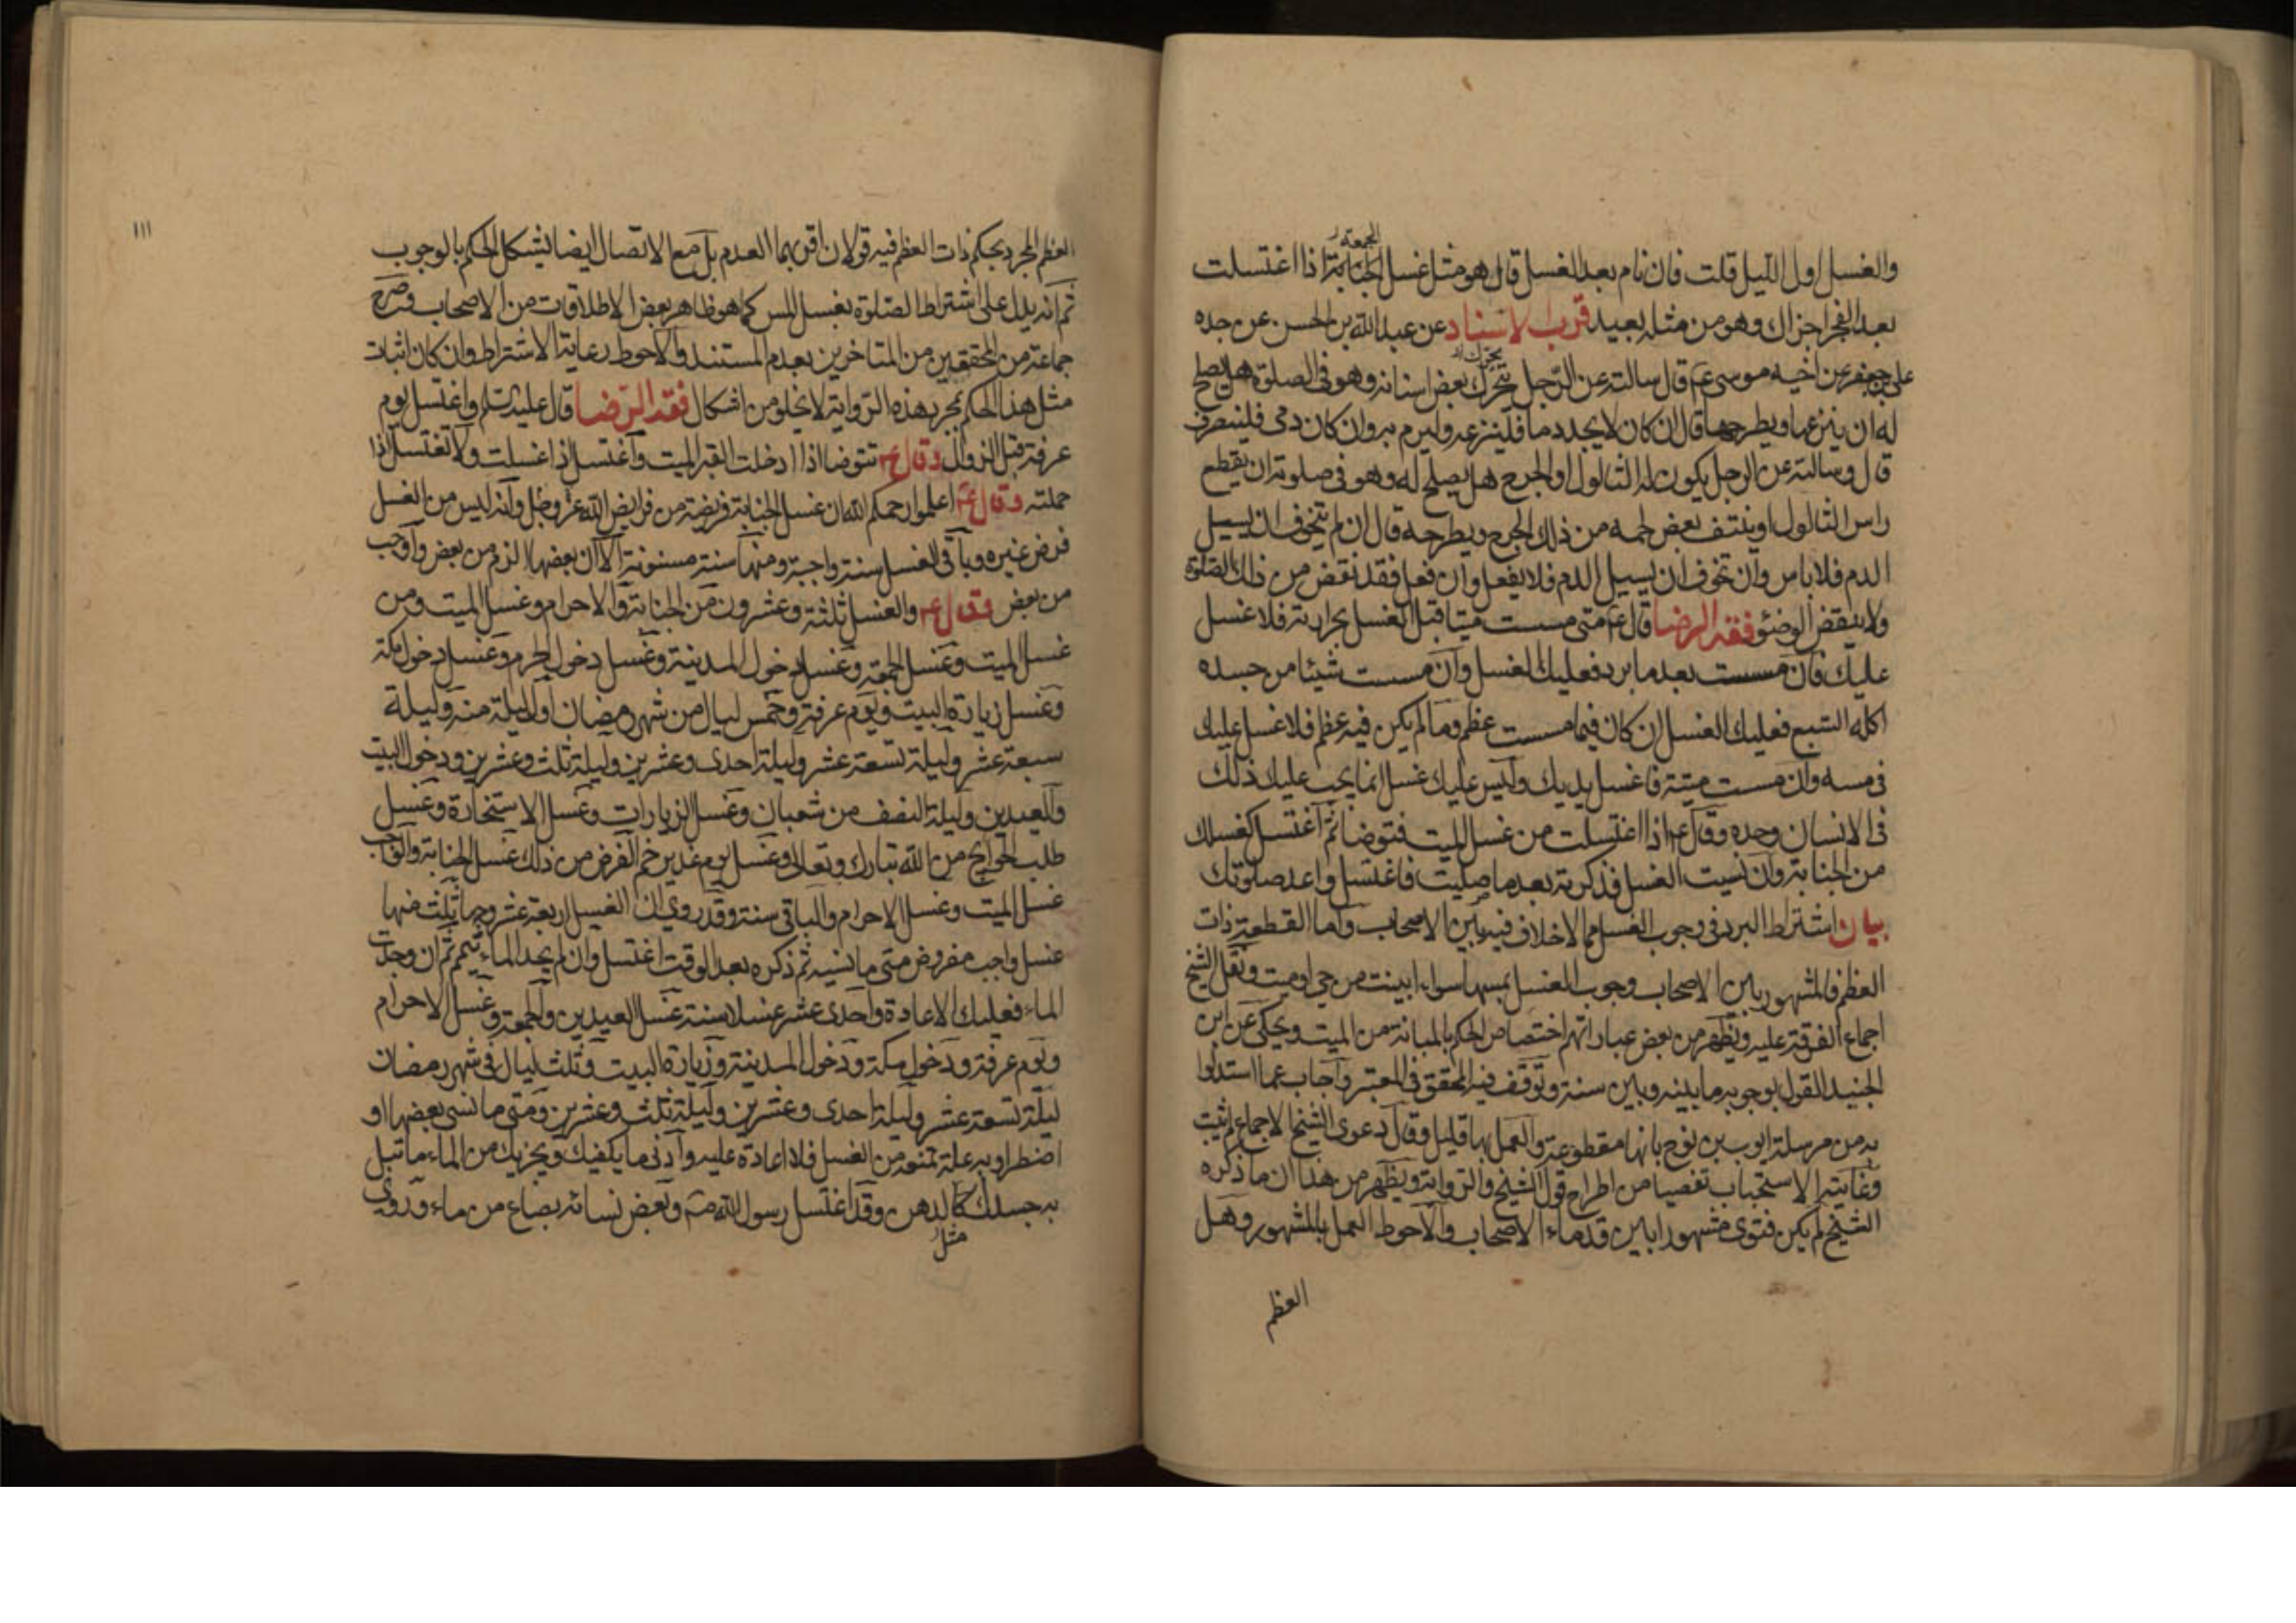 الجمعة
والغسل اول الليل قلت فان نام بعد الغسل قال هو مثل غسل الجنابة اذا اغتسلت
بعد الفجر اجزاك وهو من مثله بعيد قرب الاسناد عن عبد الله بن الحسن عن جده
على بن جعفر عن اخيه موسى ع قال سالته عن الرجل يتحرك بعض اسنانه وهو فى الصلوة هل يصلح
له ان ينزعها ويطرحها قال ان كان لا يجد دما فلينزعه وليرم به وان كان دمى فلينصرف
قال وسالته عن الرجل يكون له الثالول او الجرح هل يصلح له وهو فى صلوته ان يقطع
راس الثالول او ينتف بعض لحمه من ذلك الجرح ويطرحه قال ان لم يتخوف ان يسيل
الدم فلا باس وان تخوف ان يسيل الدم فلا يفعل وان فعل فقد نقض من ذلك الصلوة
ولا ينقض الوضوء فقه الرضا قال ع متى مسست ميتا قبل الغسل بحرارته فلا غسل
عليك فان مسست بعد ما برد فعليك الغسل وان مسست شيئا من جسده
اكله السبع فعليك الغسل ان كان فيما مسست عظم وما لم يكن فيه عظم فلا غسل عليك
فى مسه وان مسست ميتة فاغسل يديك وليس عليك غسل انما يجب عليك ذلك
فى الانسان وحده وقال ع اذا اغتسلت من غسل الميت فتوضا ثم اغتسل كغسلك
من الجنابة وان نسيت الغسل فذكرته بعد ما صليت فاغتسل واعد صلوتك
بيان اشتراط البرد فى وجوب الغسل مما لا خلاف فيه بين الاصحاب واما القطعة ذات
العظم فالمشهور بين الاصحاب وجوب الغسل بمسها سواء ابينت من حى او ميت ونقل الشيخ
اجماع الفرقة عليه ويظهر من بعض عباراتهم اختصاص الحكم بالمبانة من الميت ويحكى عن ابن
الجنيد القول بوجوبه ما بينه وبين سنة وتوقف فيه المحقق فى المعتبر واجاب عما استدلوا
به من مرسلة ايوب بن نوح بانها مقطوعة والعمل بها قليل وقال دعوى الشيخ الاجماع لم يثبت
وغايته الاستحباب تفصيا من اطراح قول الشيخ والرواية ويظهر من هذا ان ما ذكره
الشيخ لم يكن فتوى مشهورا بين قدماء الاصحاب والاحوط العمل بالمشهور وهل
العظم
١١١
العظم المجرد بحكم ذات العظم فيه قولان اقربهما العدم بل مع الاتصال ايضا يشكل الحكم بالوجوب
ثم انه يدل على اشتراط الصلوة بغسل المس كما هو ظاهر بعض الاطلاقات من الاصحاب وصرح
جماعة من المحققين من المتاخرين بعدم المستند والاحوط رعاية الاشتراط وان كان اثبات
مثل هذا الحكم بمجرد هذه الرواية لا يخلو من اشكال فقه الرضا قال عليه السلم واغتسل يوم
عرفة قبل الزوال وقال ع تتوضا اذا ادخلت القبر الميت واغتسل اذا غسلت ولا تغتسل اذا
حملته وقال ع اعلموا رحمكم الله ان غسل الجنابة فريضة من فرايض الله عز وجل وانه ليس من الغسل
فرض غيره وباقى الغسل سنة واجبة ومنها سنة مسنونة الا ان بعضها الزم من بعض واوجب
من بعض وقال ع والغسل ثلثة وعشرون من الجنابة والاحرام وغسل الميت ومن
غسل الميت وغسل الجمعة وغسل دخول المدينة وغسل دخول الحرم وغسل دخول مكة
وغسل زيارة البيت ويوم عرفة وخمس ليال من شهر رمضان اول ليلة منه وليلة
سبعة عشر وليلة تسعة عشر وليلة احدى وعشرين وليلة ثلث وعشرين ودخول البيت
والعيدين وليلة النصف من شعبان وغسل الزيارات وغسل الاستخارة وغسل
طلب الحوايج من الله تبارك وتعالى وغسل يوم غدير خم الفرض من ذلك غسل الجنابة والواجب
غسل الميت وغسل الاحرام والباقى سنة وقد روى ان الغسل اربعة عشر وجها ثلث منها
غسل واجب مفروض متى ما نسيه ثم ذكره بعد الوقت اغتسل وان لم يجد الماء تيمم ثم ان وجدت
الماء فعليك الاعادة واحدى عشر غسلا سنة غسل العيدين والجمعة وغسل الاحرام
ويوم عرفة ودخول مكة ودخول المدينة وزيارة البيت وثلث ليال فى شهر رمضان
ليلة تسعة عشر وليلة احدى وعشرين وليلة ثلث وعشرين ومتى ما نسى بعضها او
اضطر او به علة تمنعه من الغسل فلا اعادة عليه وادنى ما يكفيك ويجزيك من الماء ما تبل
به جسدك كالدهن وقد اغتسل رسول الله ص وبعض نسائه بصاع من ماء وروى
مثل